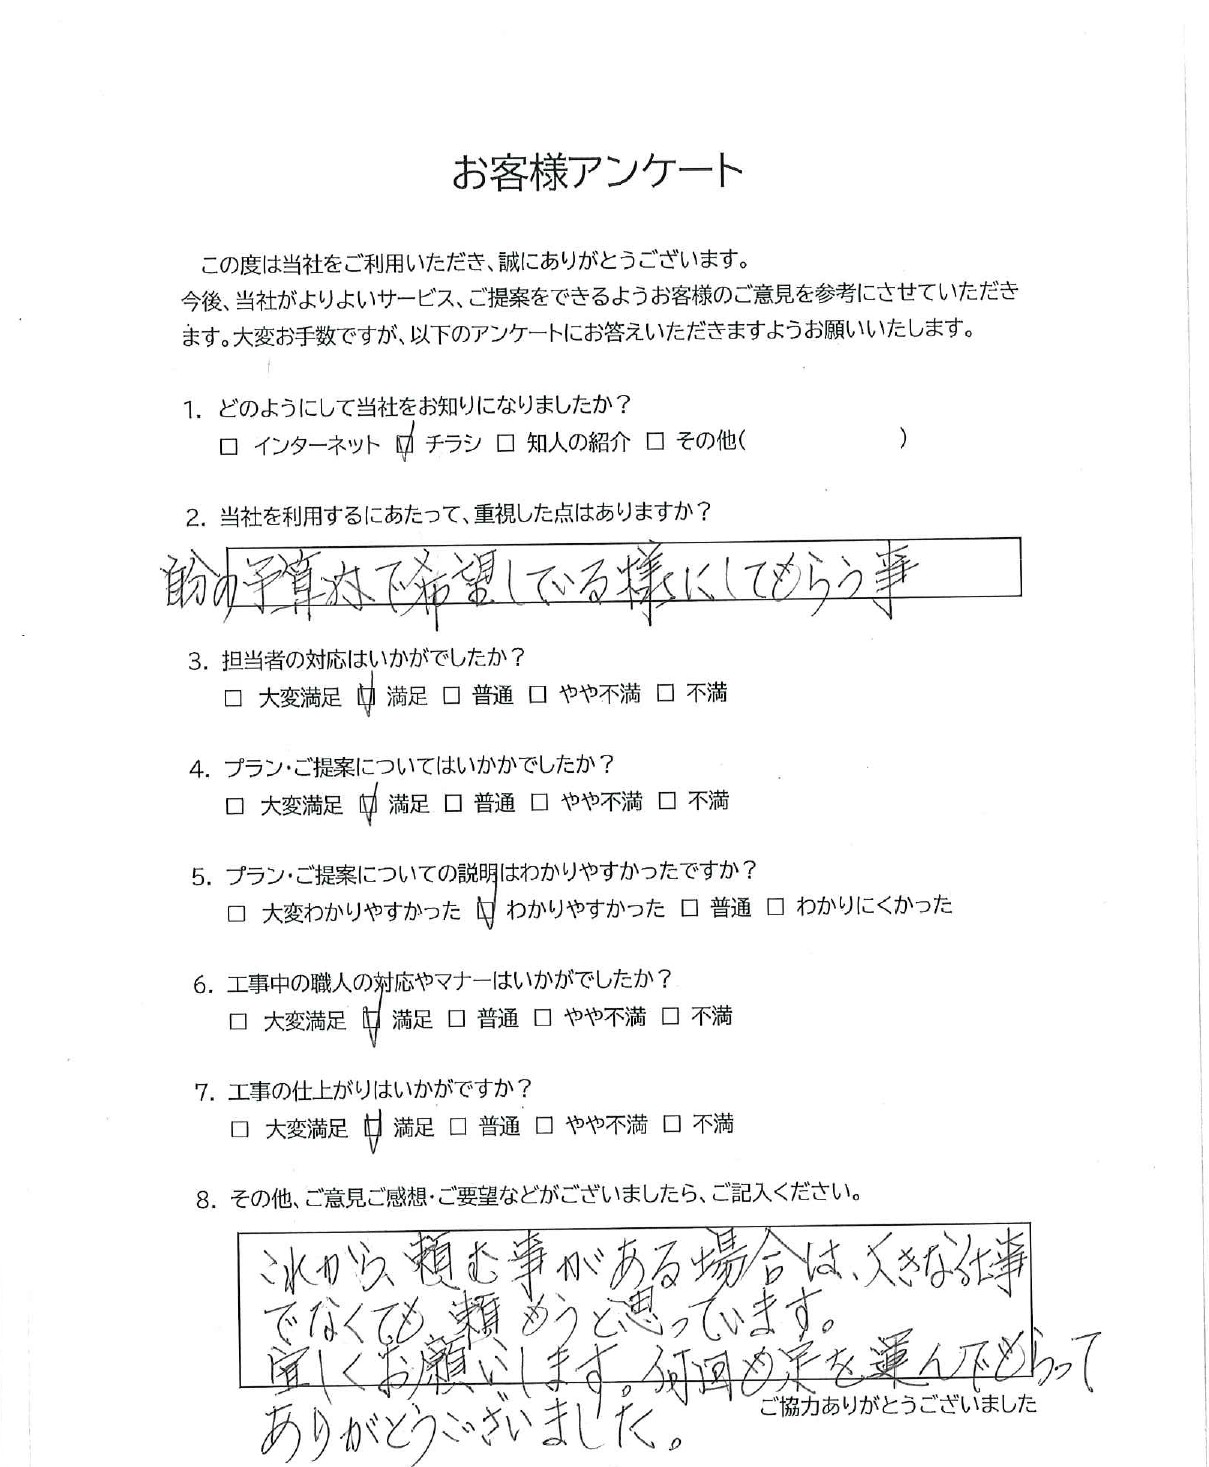 お客様アンケート
この度は当社をご利用いただき、誠にありがとうございます。
今後、当社がよりよいサービス、ご提案をできるようお客様のご意見を参考にさせていただき
ます。大変お手数ですが、以下のアンケートにお答えいただきますようお願いいたします。
1. どのようにして当社をお知りになりましたか？
□ インターネット ☑ チラシ □ 知人の紹介 □ その他( )
2. 当社を利用するにあたって、重視した点はありますか？
自分の予算内で希望している様にしてもらう事
3. 担当者の対応はいかがでしたか？
□ 大変満足 ☑ 満足 □ 普通 □ やや不満 □ 不満
4. プラン・ご提案についてはいかかでしたか？
□ 大変満足 ☑ 満足 □ 普通 □ やや不満 □ 不満
5. プラン・ご提案についての説明はわかりやすかったですか？
□ 大変わかりやすかった ☑ わかりやすかった □ 普通 □ わかりにくかった
6. 工事中の職人の対応やマナーはいかがでしたか？
□ 大変満足 ☑ 満足 □ 普通 □ やや不満 □ 不満
7. 工事の仕上がりはいかがですか？
□ 大変満足 ☑ 満足 □ 普通 □ やや不満 □ 不満
8. その他、ご意見ご感想・ご要望などがございましたら、ご記入ください。
これから、頼む事がある場合は、大きな仕事
でなくても、頼もうと思っています。
宜しくお願いします。何回も足を運んでもらって
ありがとうございました。
ご協力ありがとうございました